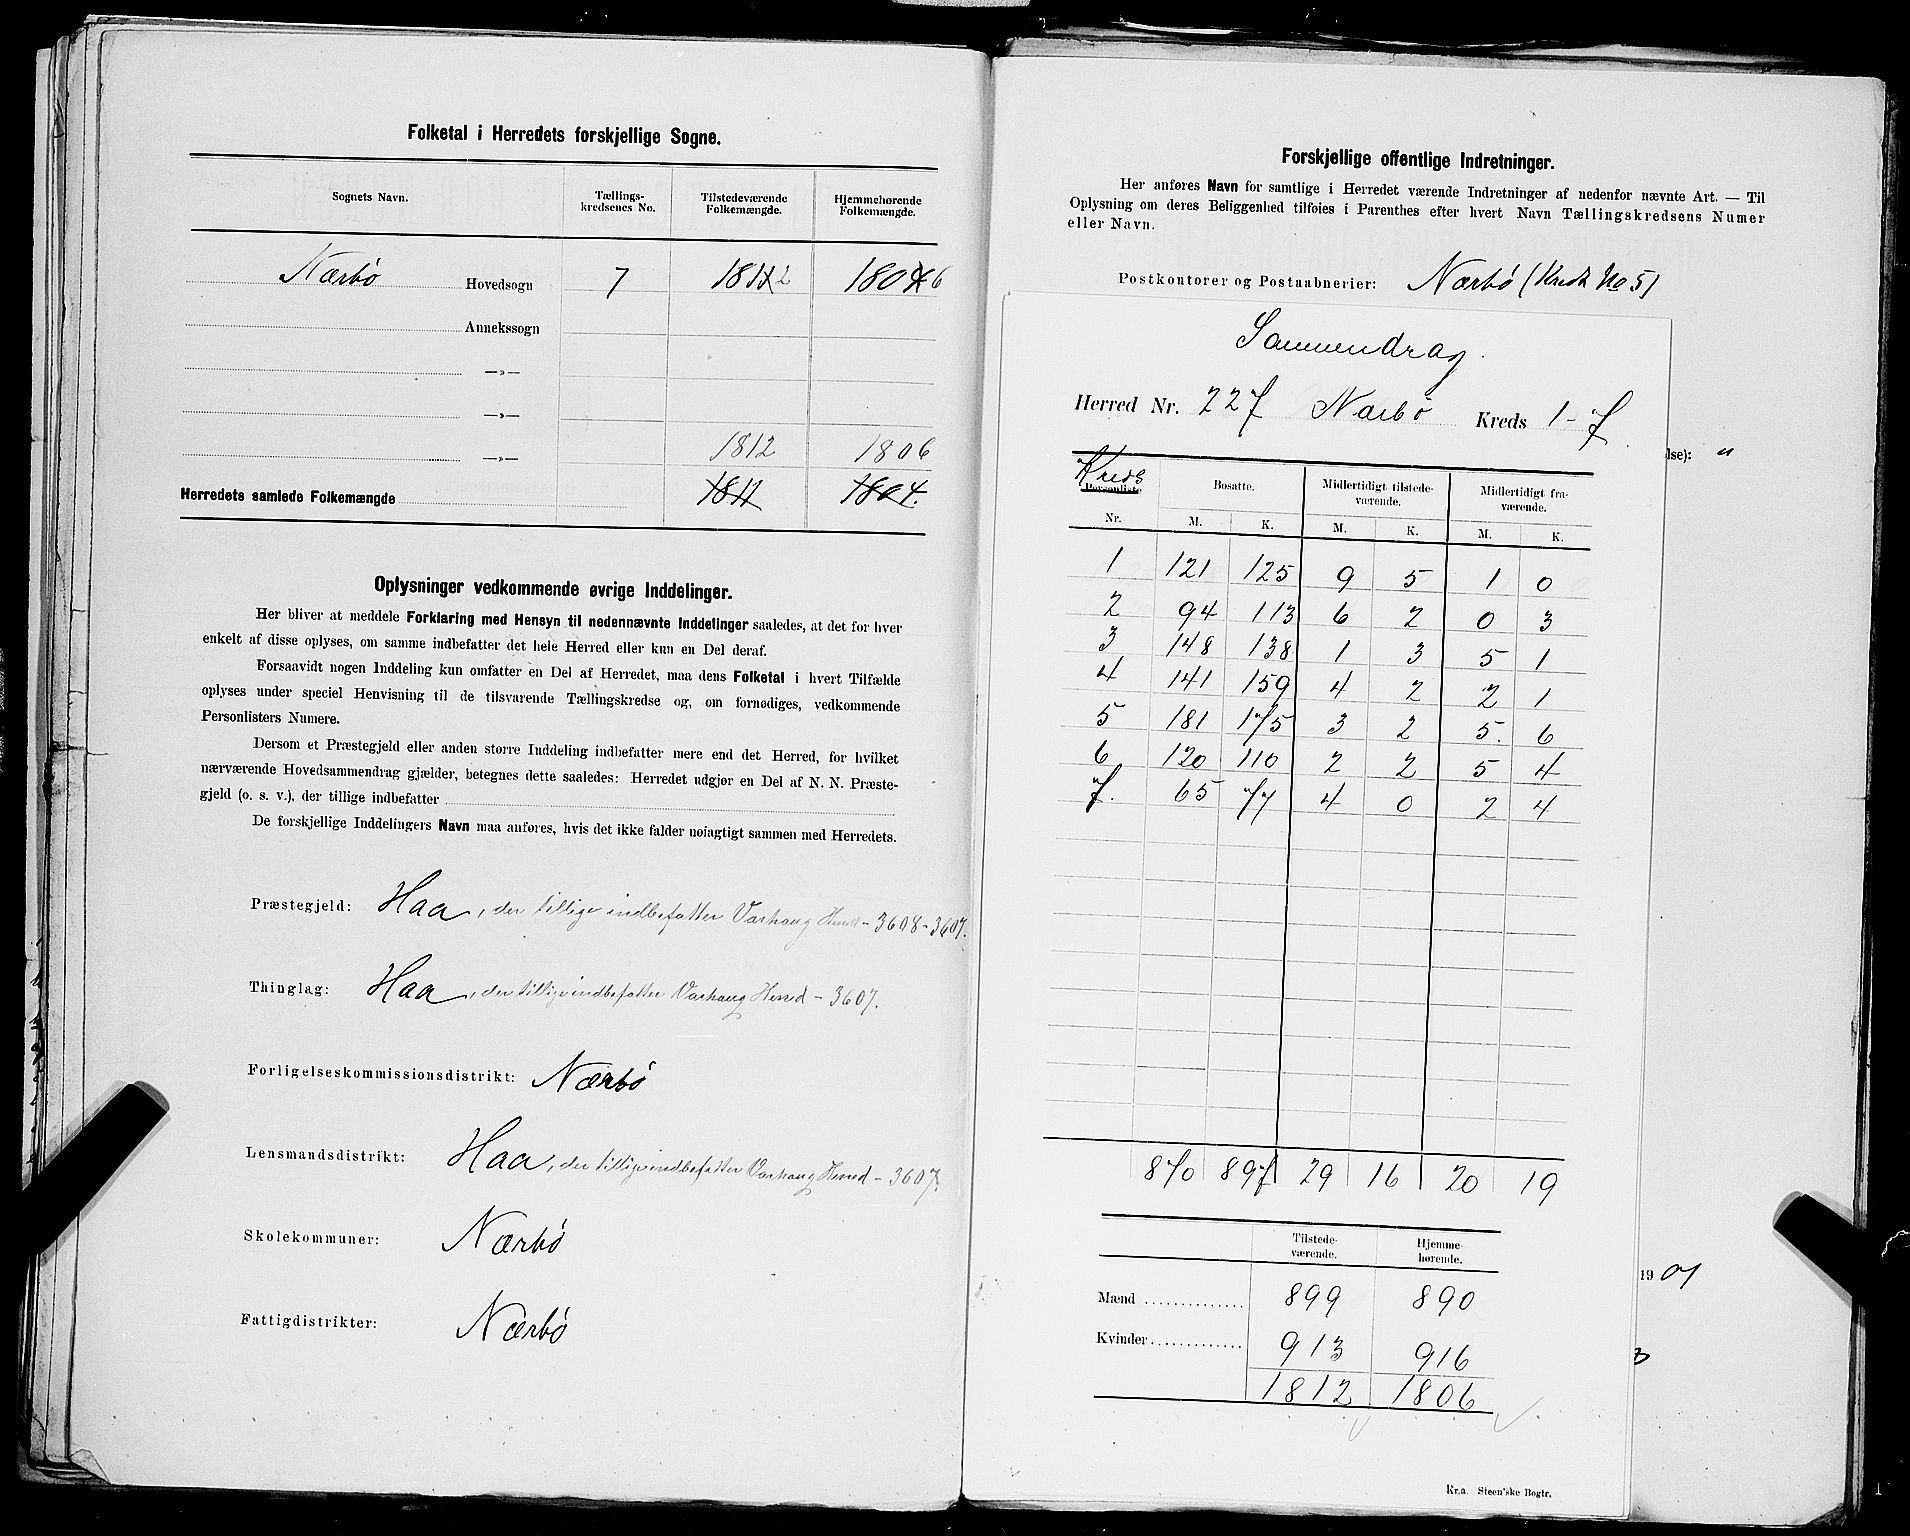 Folketal i Herredets forskjellige Sogne.
Sognets Navn. Tællings-kredsenes No. Tilstedeværende Folkemængde. Hjemmehørende Folkemængde.
Nærbø Hovedsogn 7 1811 2 1804 6
Annekssogn
—»—
—»—
—»— 1812 1806
Herredets samlede Folkemængde 1811 1804.
Oplysninger vedkommende øvrige Inddelinger.
Her bliver at meddele Forklaring med Hensyn til nedennævnte Inddelinger saaledes, at det for hver
enkelt af disse oplyses, om samme indbefatter det hele Herred eller kun en Del deraf.
Forsaavidt nogen Inddeling kun omfatter en Del af Herredet, maa dens Folketal i hvert Tilfælde
oplyses under speciel Henvisning til de tilsvarende Tællingskredse og, om fornødiges, vedkommende
Personlisters Numere.
Dersom et Præstegjeld eller anden større Inddeling indbefatter mere end det Herred, for hvilket
nærværende Hovedsammendrag gjælder, betegnes dette saaledes: Herredet udgjør en Del af N. N. Præste-
gjeld (o. s. v.), der tillige indbefatter
De forskjellige Inddelingers Navn maa anføres, hvis det ikke falder nøiagtigt sammen med Herredets.
Præstegjeld: Haa, der tillige indbefatter Varhaug Herred - 3608 - 3607.
Thinglag: Haa, der tillige indbefatter Varhaug Herred - 3607.
Forligelseskommissionsdistrikt: Nærbø
Lensmandsdistrikt: Haa, der tillige indbefatter Varhaug Herred - 3607.
Skolekommuner: Nærbø
Fattigdistrikter: Nærbø
Forskjellige offentlige Indretninger.
Her anføres Navn for samtlige i Herredet værende Indretninger af nedenfor nævnte Art. — Til
Oplysning om deres Beliggenhed tilføies i Parenthes efter hvert Navn Tællingskredsens Numer
eller Navn.
Postkontorer og Postaabnerier: Nærbø (Kreds No 5)
Sammendrag.
Herred Nr. 227 Nærbø Kreds 1-7
lse): "
Kreds
Personliste Nr. Bosatte. Midlertidigt tilstede-værende. Midlertidigt fra-værende.
M. K. M. K. M. K.
1 121 125 9 5 1 0
2 94 113 6 2 0 3
3 148 138 1 3 5 1
4 141 159 4 2 2 1
5 181 175 3 2 5. 6
6 120 110 2 2 5 4
7. 65 77 4 0 2 4
870 897 29 16 20 19
Tilstede-værende. Hjemme-hørende.
19 01
Mænd 899 890
Kvinder 913 916
1812 1806
Kr.a. Steen'ske Bogtr.